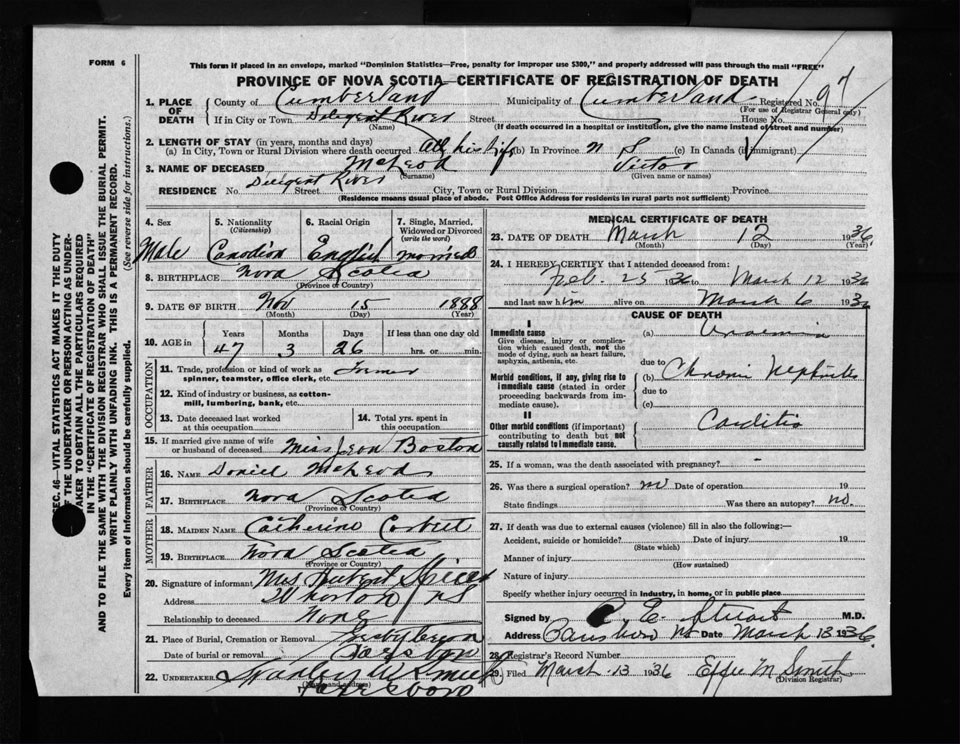 FORM 6
This form if placed in an envelope, marked "Dominion Statistics—Free, penalty for improper use $300," and properly addressed will pass through the mail "FREE"
PROVINCE OF NOVA SCOTIA—CERTIFICATE OF REGISTRATION OF DEATH
SEC. 46—VITAL STATISTICS ACT MAKES IT THE DUTY
OF THE UNDERTAKER OR PERSON ACTING AS UNDER-
TAKER TO OBTAIN ALL THE PARTICULARS REQUIRED
IN THE "CERTIFICATE OF REGISTRATION OF DEATH"
AND TO FILE THE SAME WITH THE DIVISION REGISTRAR WHO SHALL ISSUE THE BURIAL PERMIT.
WRITE PLAINLY WITH UNFADING INK. THIS IS A PERMANENT RECORD.
Every item of Information should be carefully supplied. (See reverse side for instructions.)
1. PLACE OF DEATH County of Cumberland Municipality of Cumberland Registered No. 97
(For use of Registrar General only)
If in City or Town Deligent River Street House No.
(Name) (If death occurred in a hospital or institution, give the name instead of street and number)
2. LENGTH OF STAY (in years, months and days)
(a) In City, Town or Rural Division where death occurred All his life (b) In Province N S (c) In Canada (if immigrant)
3. NAME OF DECEASED McLeod Victor
(Surname) (Given name or names)
RESIDENCE No. Deligent River Street City, Town or Rural Division Province
(Residence means usual place of abode. Post Office Address for residents in rural parts not sufficient)
4. Sex 5. Nationality (Citizenship) 6. Racial Origin 7. Single, Married, Widowed or Divorced (write the word)
Male Canadian English married
8. BIRTHPLACE Nova Scotia
(Province or Country)
9. DATE OF BIRTH Nov 15 1888
(Month) (Day) (Year)
10. AGE in Years Months Days If less than one day old
47 3 26 hrs. or min.
OCCUPATION
11. Trade, profession or kind of work as
spinner, teamster, office clerk, etc.
12. Kind of industry or business, as cotton-
mill, lumbering, bank, etc.
13. Date deceased last worked
at this occupation
14. Total yrs. spent in
this occupation
15. If married give name of wife
or husband of deceased Miss Jean Boston
FATHER
16. NAME Daniel McLeod
17. BIRTHPLACE Nova Scotia
(Province or Country)
MOTHER
18. MAIDEN NAME Catherine Corbett
19. BIRTHPLACE Nova Scotia
(Province or Country)
20. Signature of informant Mrs Hubert
Address Wharton NS
Relationship to deceased None
21. Place of Burial, Cremation or Removal
Date of burial or removal
22. UNDERTAKER Stanley W Smith
(Name and address)
Parrsboro
MEDICAL CERTIFICATE OF DEATH
23. DATE OF DEATH March 12 1936
(Month) (Day) (Year)
24. I HEREBY CERTIFY that I attended deceased from:
Feb. 25 1936 to March 12 1936
and last saw him alive on March 6 1936
CAUSE OF DEATH
I
Immediate cause
Give disease, injury or complica-
tion which caused death, not the
mode of dying, such as heart failure,
asphyxia, asthenia, etc.
(a) Uraemia
due to
Morbid conditions, if any, giving rise to
immediate cause (stated in order
proceeding backwards from im-
mediate cause).
(b) Chronic Nephritis
due to
(c)
II
Other morbid conditions (if important)
contributing to death but not
causally related to immediate cause.
Carditis
25. If a woman, was the death associated with pregnancy? -
26. Was there a surgical operation? no Date of operation 19
State findings Was there an autopsy? no.
27. If death was due to external causes (violence) fill in also the following:—
Accident, suicide or homicide? Date of injury 19
(State which)
Manner of injury
(How sustained)
Nature of injury
Specify whether injury occurred in industry, in home, or in public place
Signed by E. Stuart M.D.
Address Parrsboro NS Date March 13 1936
28. Registrar's Record Number
29. Filed March 13 1936 Effie M Smith
(Division Registrar)